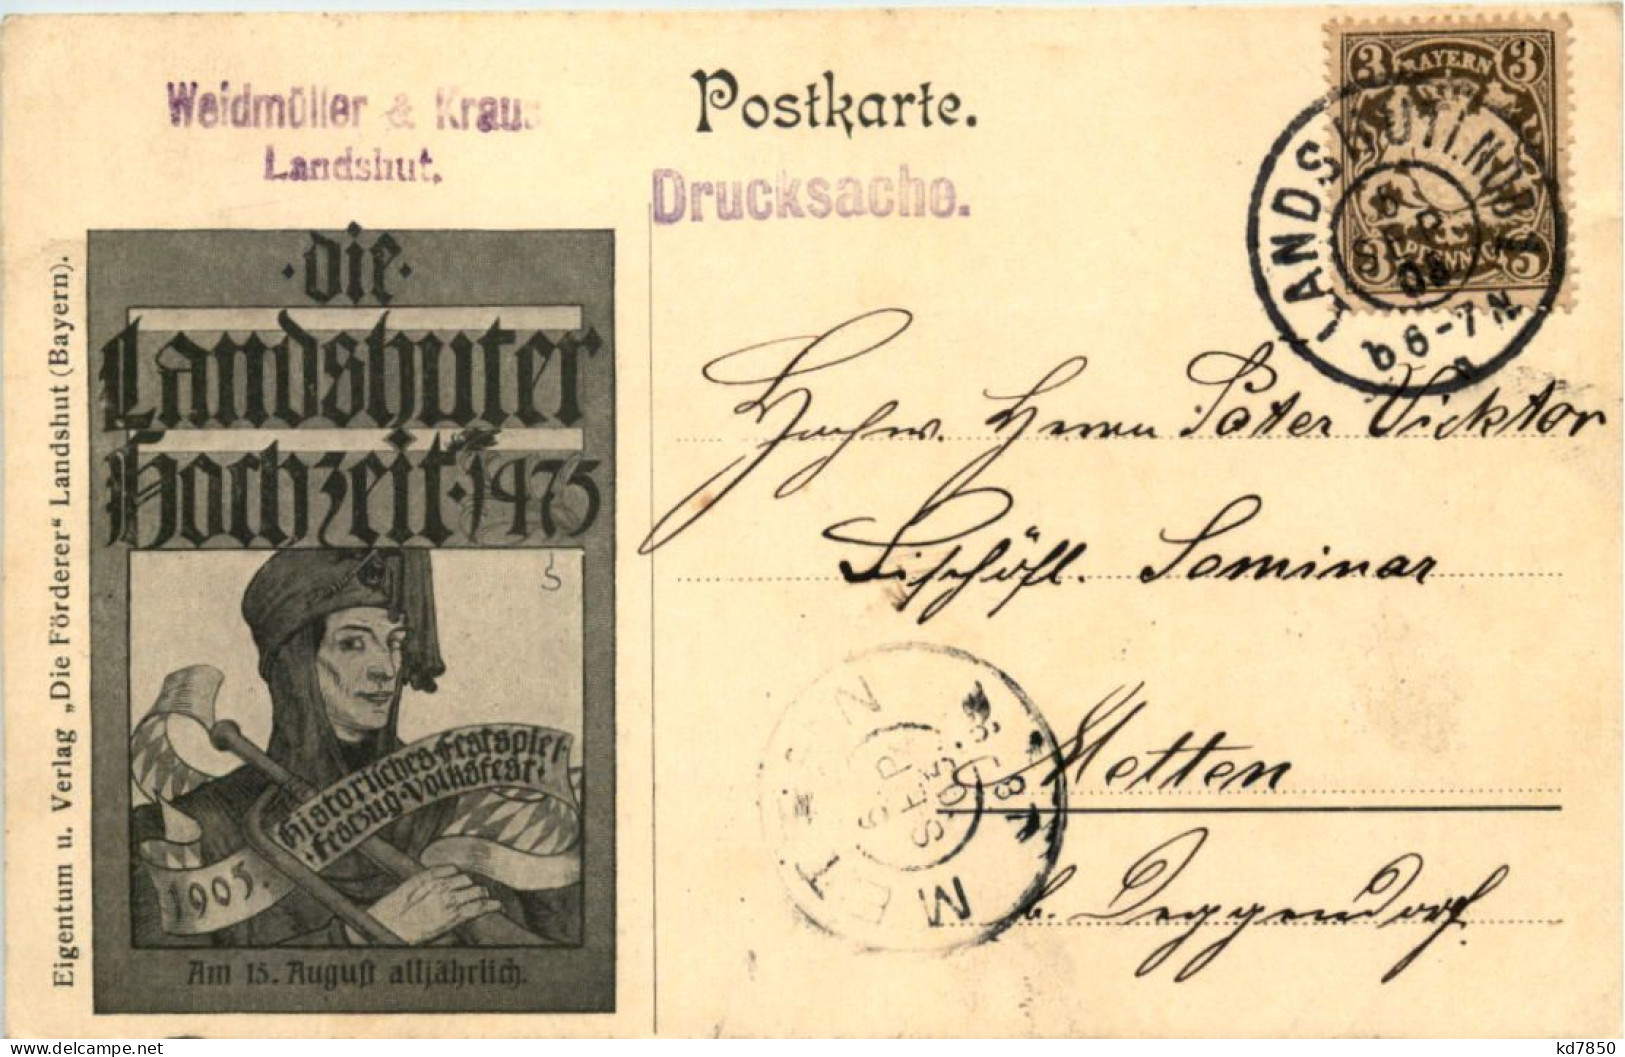 Weidmüller & Kraus
Landshut.
Postkarte.
Drucksache.
3 BAYERN 3
3 PFENNIG 3
LANDSHUT
SEP
b 6-7 N
Eigentum u. Verlag „Die Förderer" Landshut (Bayern).
·die·
Landshuter
Hochzeit·1475
Historisches Festspiel
·Festzug·Volksfest·
1905.
Am 15. August alljährlich.
Hochw. Herrn Pater Vicktor
Bischöfl. Seminar
Metten
b. Deggendorf.
METTEN
6
SEP
kd7850